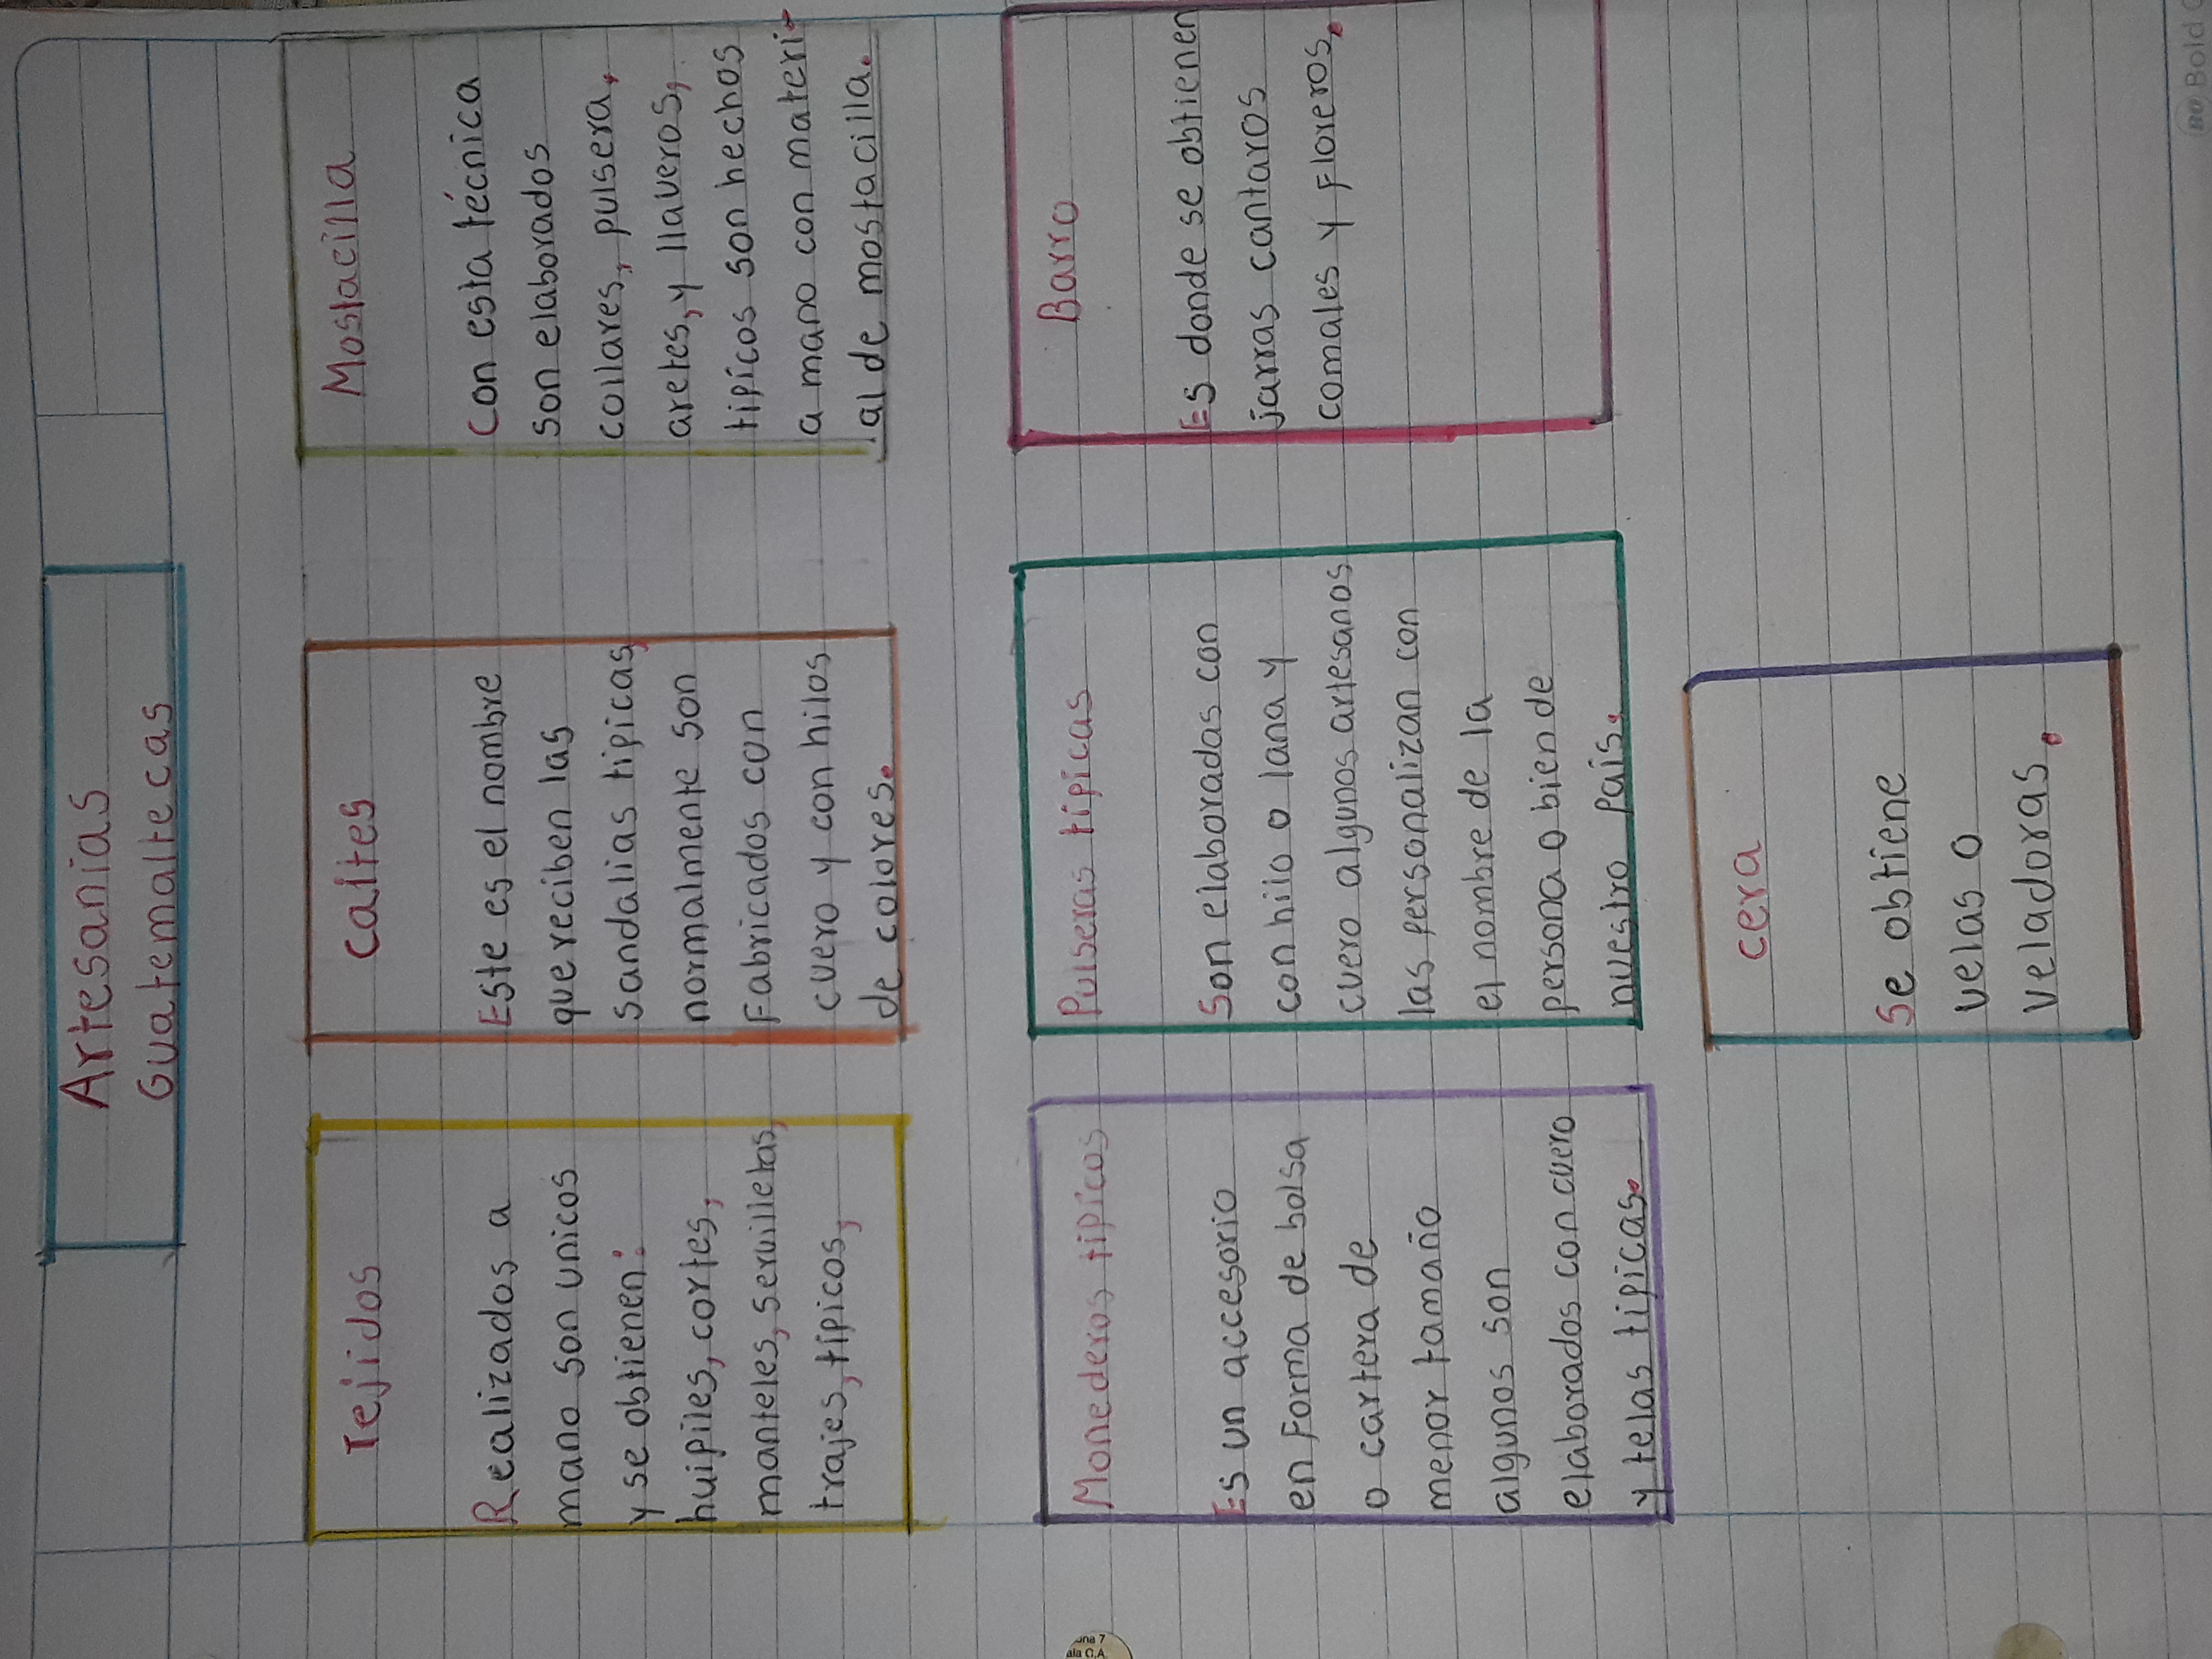 Artesanias
Guatemaltecas
Tejidos
Realizados a
mano son unicos
y se obtienen:
huipiles, cortes,
manteles, servilletas,
trajes, tipicos,
caites
Este es el nombre
que reciben las
sandalias tipicas,
normalmente son
Fabricados con
cuero y con hilos
de colores.
Mostacilla
Con esta técnica
son elaborados
collares, pulsera,
aretes, y llaveros,
tipicos son hechos
a mano con materi-
al de mostacilla.
Monederos tipicos
Es un accesorio
en Forma de bolsa
o cartera de
menor tamaño
algunos son
elaborados con cuero
y telas tipicas.
Pulseras tipicas
Son elaboradas con
con hilo o lana y
cuero algunos artesanos
las personalizan con
el nombre de la
persona o bien de
nuestro País.
Barro
Es donde se obtienen
jarras cantaros
comales y Floreros.
cera
Se obtiene
velas o
veladoras.
7
ala C.A.
Bold